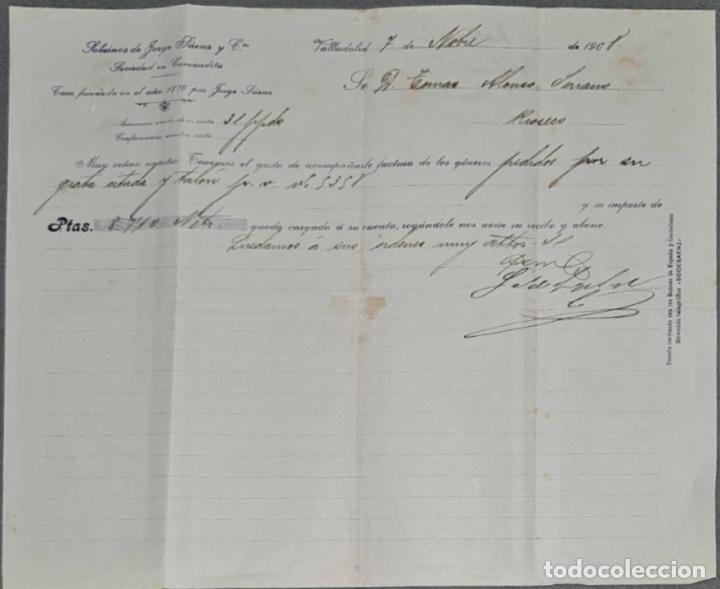 Sobrinos de Jorge Sáenz y Cía
Sociedad en Comandita
Casa fundada en el año 1876 por Jorge Sáenz
Valladolid 7 de Nobre de 1908
Sr D. Tomas Alonso Serrano
Rioseco
Acusamos recibo de su carta 31 ppdo
Confirmamos nuestra carta
Muy señor nuestro: Tenemos el gusto de acompañarle factura de los géneros pedidos por su
grata citada y talón p. v. nº 5358
y su importe de
Ptas. 87,10 Neto queda cargado á su cuenta, rogándole nos avise su recibo y abono.
Quedamos á sus órdenes muy attos. SS
Cuenta corriente con los Bancos de España y Castellano
Dirección telegráfica: «SODESAENZ»
todocoleccion.net